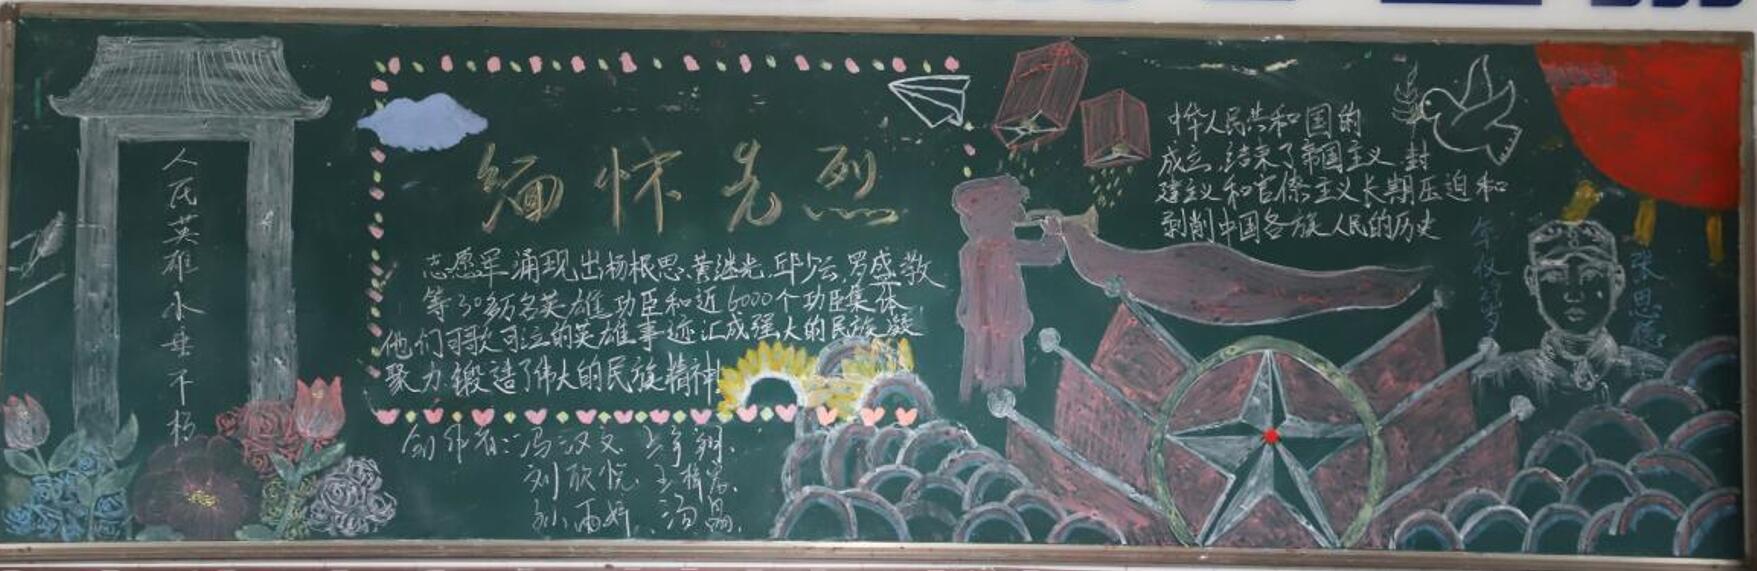 人民英雄永垂不朽
缅怀先烈
志愿军涌现出杨根思、黄继光、邱少云、罗盛教
等30多万名英雄功臣和近6000个功臣集体,
他们可歌可泣的英雄事迹汇成强大的民族凝
聚力,锻造了伟大的民族精神!
创作者:冯汉文
刘欣悦
孙雨妍、汤晶、
中华人民共和国的
成立,结束了帝国主义、封
建主义和官僚主义长期压迫和
剥削中国各族人民的历史
年仅
张思德